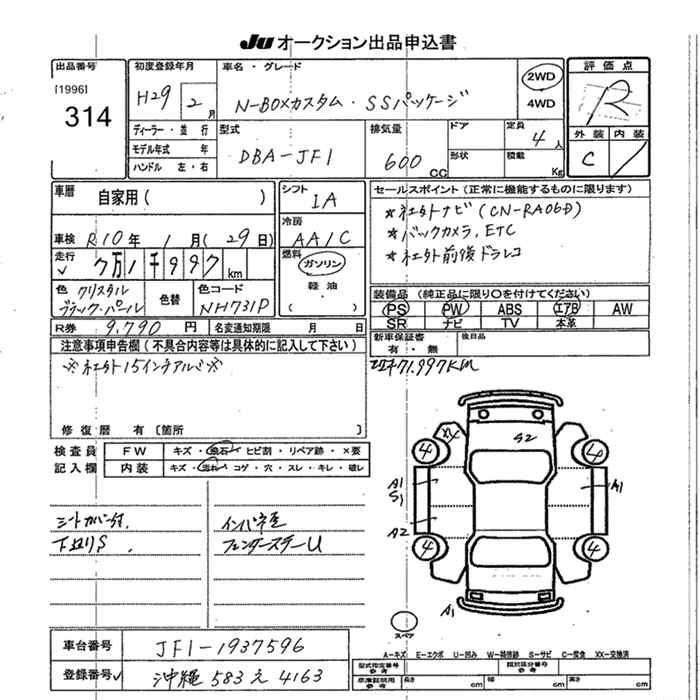 JU オークション出品申込書
出品番号 初度登録年月 車名・グレード 評価点
[1996]
314
H29 2月 N-BOXカスタム・SSパッケージ 2WD R
4WD
ディーラー・並行 型式 排気量 ドア 定員 4人 外装 内装
モデル年式 年 形状 積載 Kg C /
ハンドル 左・右 DBA-JF1 600CC
車歴 自家用( ) シフト IA セールスポイント(正常に機能するものに限ります)
※社外ナビ(CN-RA06D)
車検 R10年 1月(29日) 冷房 AA/C ※バックカメラ,ETC
走行 7万1千997km 燃料 ガソリン ※社外前後ドラレコ
軽油
色 クリスタルブラック・パール 色替 色コード NH731P ( )
装備品(純正品に限り○を付けてください)
PS PW ABS エアB AW
SR ナビ TV 本革
R券 9,790円 名変通知期限 月 日
新車保証書 有・無 後日品
注意事項申告欄(不具合内容等は具体的に記入して下さい)
※社外15インチアルミ※
71,997Km
修復歴 有〔箇所 〕
検査員 FW キズ・飛石・ヒビ割・リペア跡・×要
記入欄 内装 キズ・汚れ・コゲ・穴・スレ・キレ・破レ
S2
XX
4 4
A1
S1
A1
A2
4 4
A1
スペア
シートカバー付, インパネ歪
下廻りS フェンダーステーU
A-キズ E-エクボ U-凹み W-補修跡 S-サビ C-腐食 XX-交換済
車台番号 JF1-1937596
登録番号 沖縄 583 え 4163
型式指定番号 参考 類別区分番号 参考
車庫証明用 参考 長さ cm 幅 cm 高さ cm